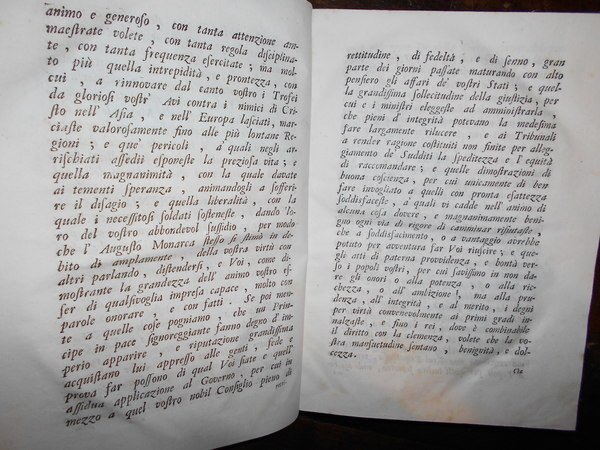 animo e generoso , con tanta attenzione am-
maestrate volete , con tanta regola disciplina-
te , con tanta frequenza esercitate ; ma mol-
to più quella intrepidità , e prontezza , con
cui , a rinnovare dal canto vostro i Trofei
da gloriosi vostr' Avi contra i nimici di Cri-
sto nell' Asia , e nell' Europa lasciati, mar-
ciaste valorosamente fino alle più lontane Re-
gioni ; e que' pericoli , a' quali negli ar-
rischiati assedii esponeste la preziosa vita ; e
quella magnanimità , con la quale davate
ai tementi speranza , animandogli a sofferi-
re il disagio ; e quella liberalità , con la
quale i necessitosi soldati sosteneste , dando lo-
ro del vostro abbondevol sussidio , per modo
che l' Augusto Monarca stesso si stimò in de-
bito di amplamente , della vostra virtù con
altri parlando , distendersi , e Voi , come di-
mostrante la grandezza dell' animo vostro es-
ser di qualsivoglia impresa capace , molto con
parole onorare , e con fatti . Se poi men-
te a quelle cose pogniamo , che un Prin-
cipe in pace signoreggiante fanno degno d' im-
perio apparire , e riputazione grandissima
acquistano lui appresso alle genti , fede e
prova far possono di qual Voi siate e quell'
assidua applicazione al Governo , per cui in
mezzo a quel vostro nobil Consiglio pieno di
retti-
rettitudine , di fedeltà , e di senno , gran
parte dei giorni passate maturando con alto
pensiero gli affari de' vostri Stati ; e quel-
la grandissima sollecitudine della giustizia, per
cui e i ministri eleggeste ad amministrarla ,
che pieni d' integrità potevano la medesima
fare largamente rilucere , e ai Tribunali
a render ragione costituiti non finite per alleg-
giamento de Sudditi la speditezza e l' equità
di raccomandare ; e quelle dimostrazioni di
buona coscienza , per cui unicamente di ben
fare invogliato a quelli con pronta esattezza
soddisfaceste , a' quali vi cadde nell' animo di
alcuna cosa dovere , e magnanimamente beni-
guo ogni via di rigore di camminar rifiutaste ,
che a soddisfacimento , o a vantaggio avrebbe
potuto per avventura far Voi riuscire ; e que-
gli atti di paterna provvidenza , e bontà ver-
so i popoli vostri , per cui savissimo in non da-
re gli onori o alla potenza , o alla ric-
chezza , o all' ambizione , ma alla pru-
denza , all' integrità , e al merito , i degni
per virtù convenevolmente ai primi gradi in-
nalzaste , e fino i rei , dove è combinabile
il diritto con la clemenza , volete che la vo-
stra mansuetudine sentano , benignità , e dol-
cezza.